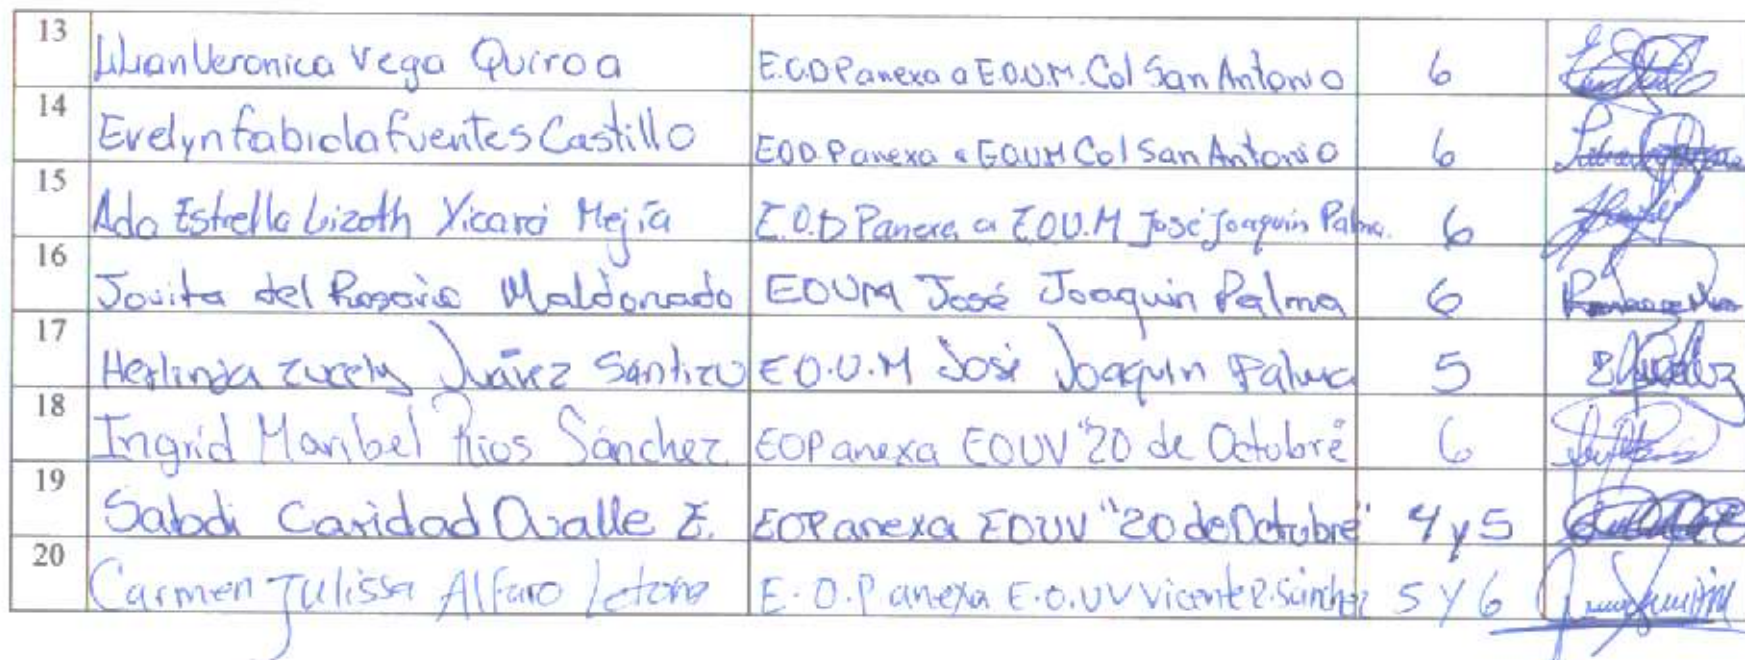 13 Lilian Veronica Vega Quiroa E.O.D.P anexa a E.O.U.M. Col San Antonio 6
14 Evelyn Fabiola Fuentes Castillo EOD.P anexa a EOUM Col San Antonio 6
15 Ada Estrella Lizoth Xicará Mejía E.O.D P anexa a E.O.U.M José Joaquín Palma. 6
16 Jovita del Rosario Maldonado EOUM José Joaquin Palma 6
17 Herlinda Zucely Juárez Santizo E.O.U.M José Joaquín Palma 5
18 Ingrid Maribel Rios Sánchez EOP anexa EOUV "20 de Octubre" 6
19 Caridad Ovalle E. EOP anexa EOUV "20 de Octubre" 4 y 5
20 Carmen Julissa Alfaro Letona E.O.P anexa E.O.UV Vicente R. Sánchez 5 y 6